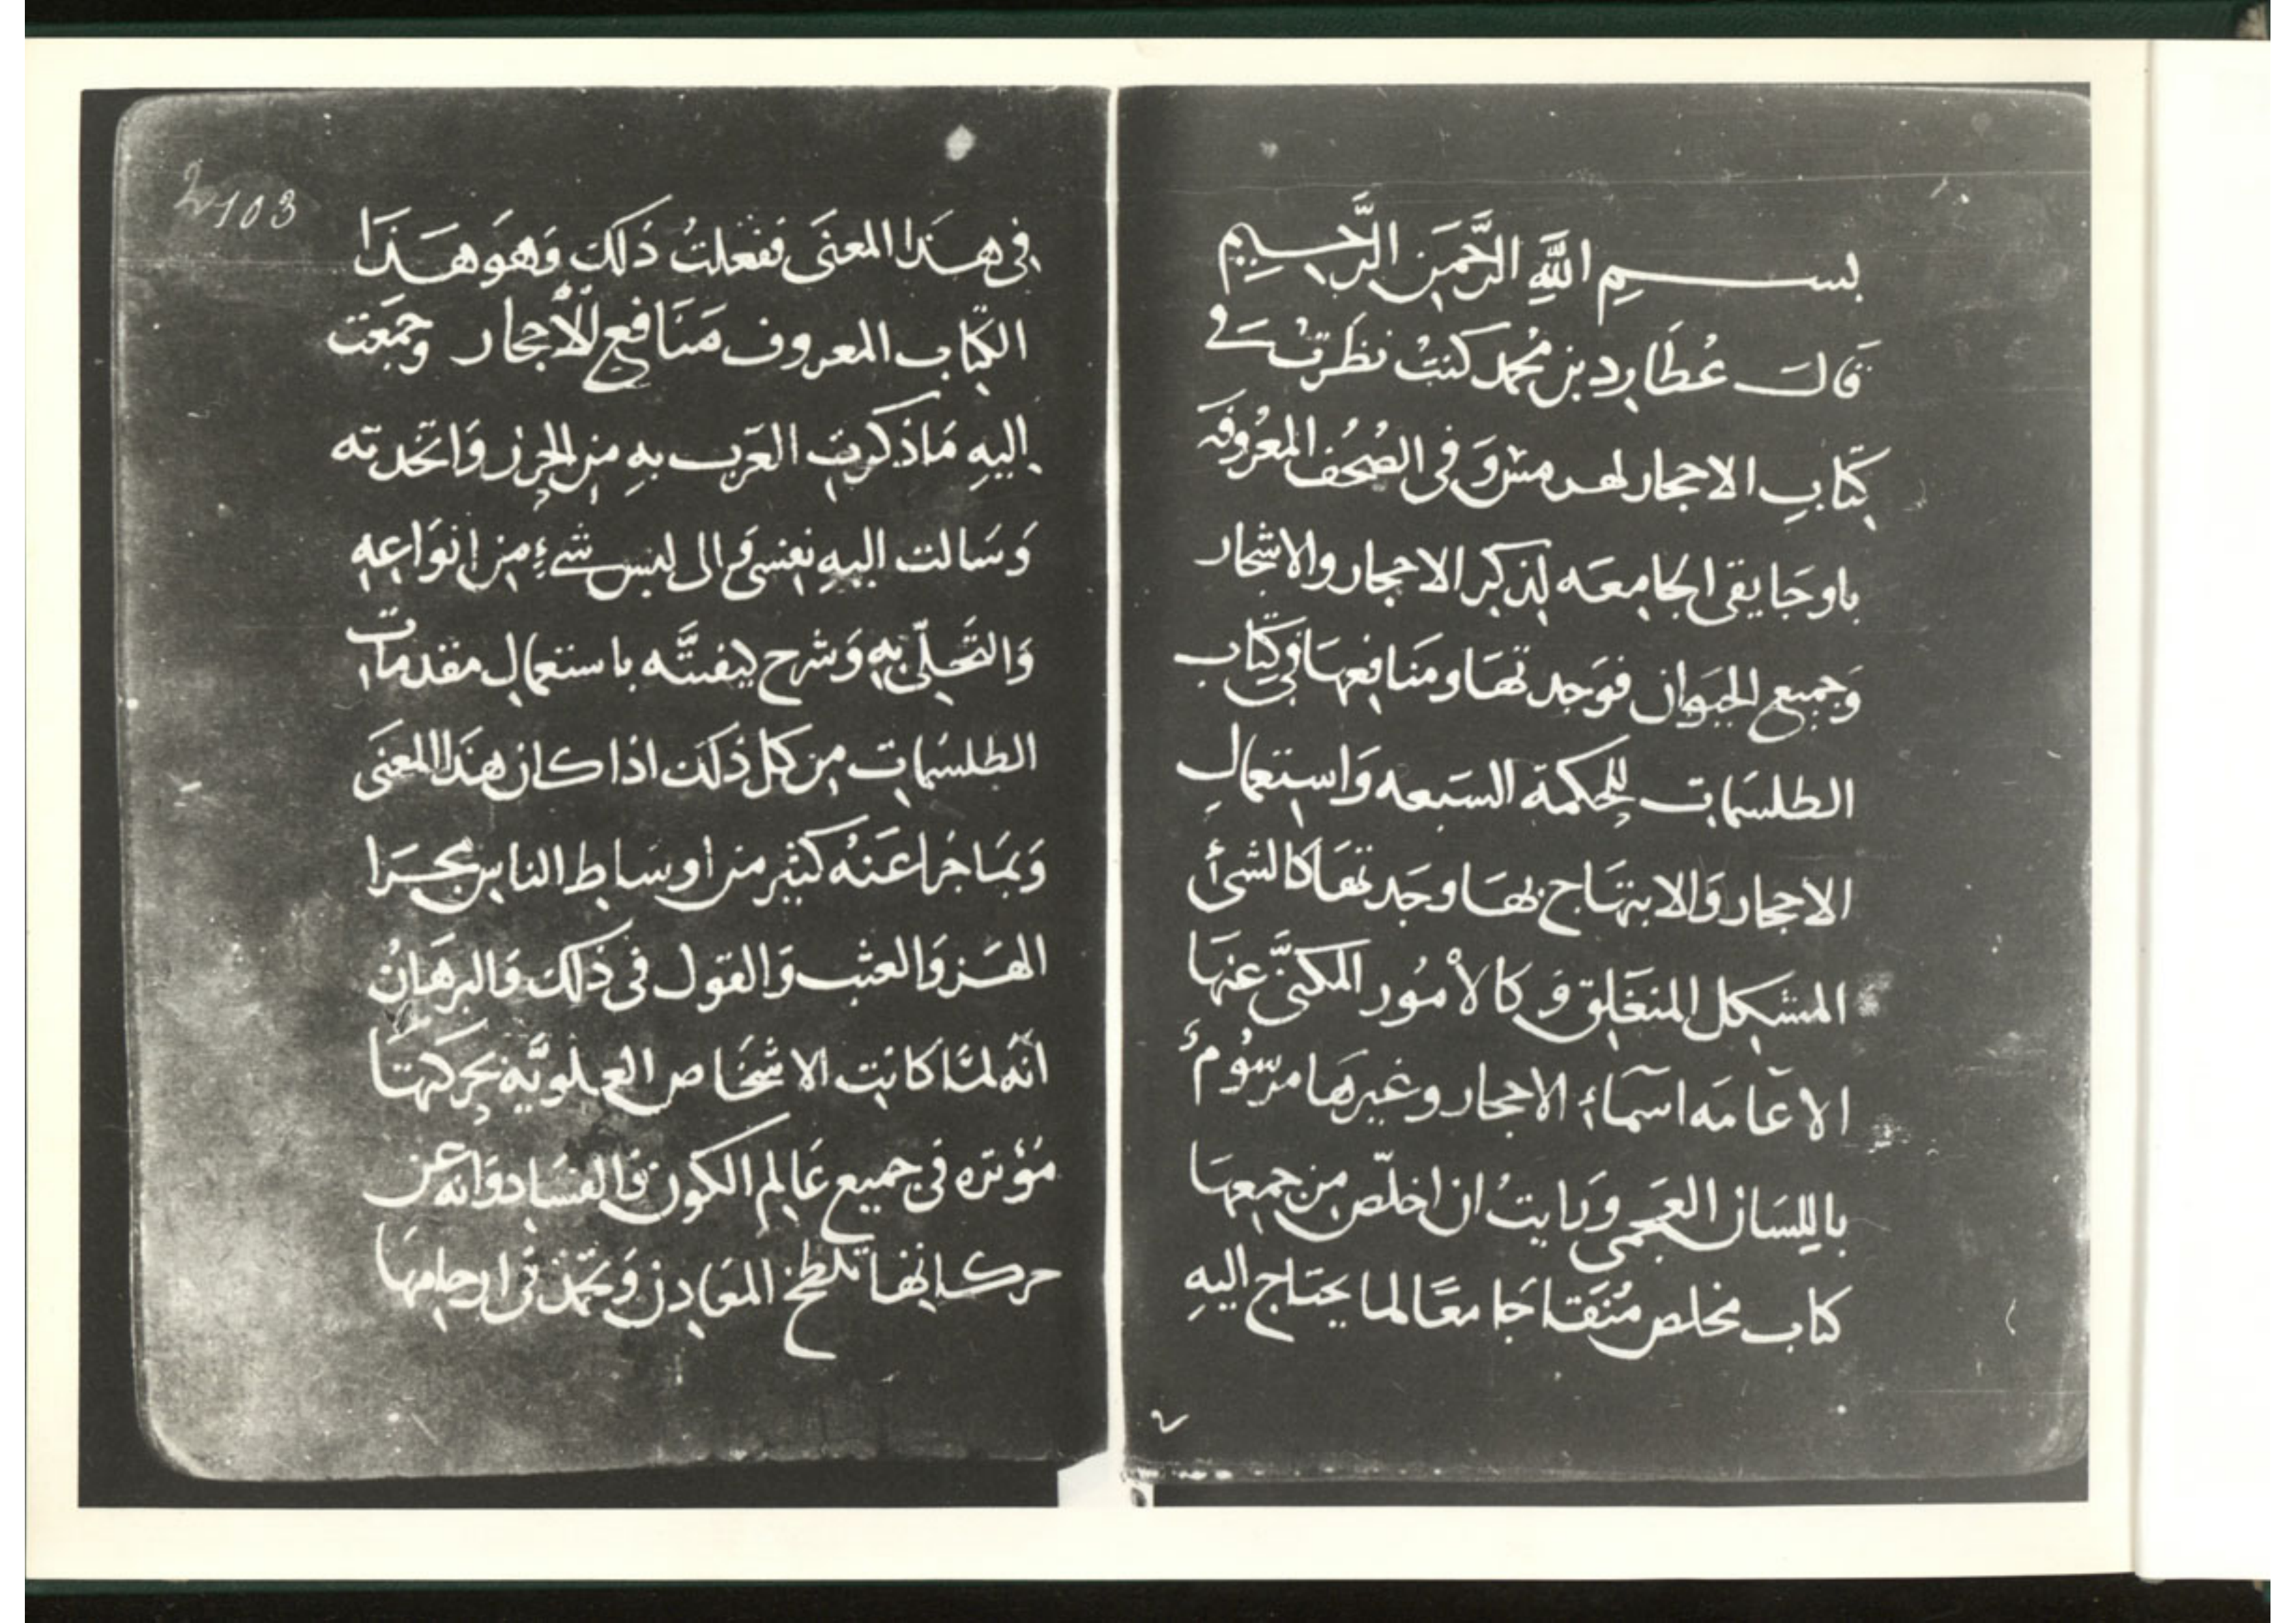 بسم الله الرَّحمَن الرَّحِيم
قَالَ عُطَارِد بن مُحمد كنتُ نظَرتُ في
كِتَابِ الاحجار لهرمس وَفى الصُحُف المعرُوفَه
باوجايقى الجامِعَه لِذكر الاحجار والاشجار
وَجميع الحيوان فوَجدتهَا ومنَافِعهَا فى كِتَاب
الطلسَمات للحِكمة السَبعه وَاستعمالِ
الاحجار وَالابتهَاج بهَا وجَدتهَا كالشئ
المشكِل المنغَلِق وَكالأمُور المكنَّى عنهَا
الاعامَه اسمآءِ الاحجار وغيرهَا مرسُومٌ
باللِسَان العَجمى ورايتُ ان اخلّص مِن جميعهَا
كتاب مخلص مُنَقا جَامعًا لما يحتَاج اليهِ
2 103
فى هَذا المعنَى ففعلتُ ذَلك وَهوَ هَذَا
الكِتَاب المعروف مَنَافع الأحجار وجمَعت
اليهِ مَا ذكرت العَرب بهِ من الخرز وَاتخدته
وَسَالت اليهِ نفسى فى الى لبس شئٍ مِن انوَاعِهِ
وَالتَحلّى بهِ وَشرح باستعمال مقدمات
الطلسمات مِن كل ذَلك اذا كان هَذا المعنَى
وَبمَا جَرا عَنهُ كثير من اوسَاط الناس مجرَا
الهَزو العبث وَالقول فى ذَلك وَالبرهَانُ
انَّه لمَّا كانت الاشخَاص العلويَّه بحركتهَا
مُؤثره فى جميع عَالم الكون وَالفسَاد وَانه عن
حركاتها المعَادِن فى ارحامِهَا